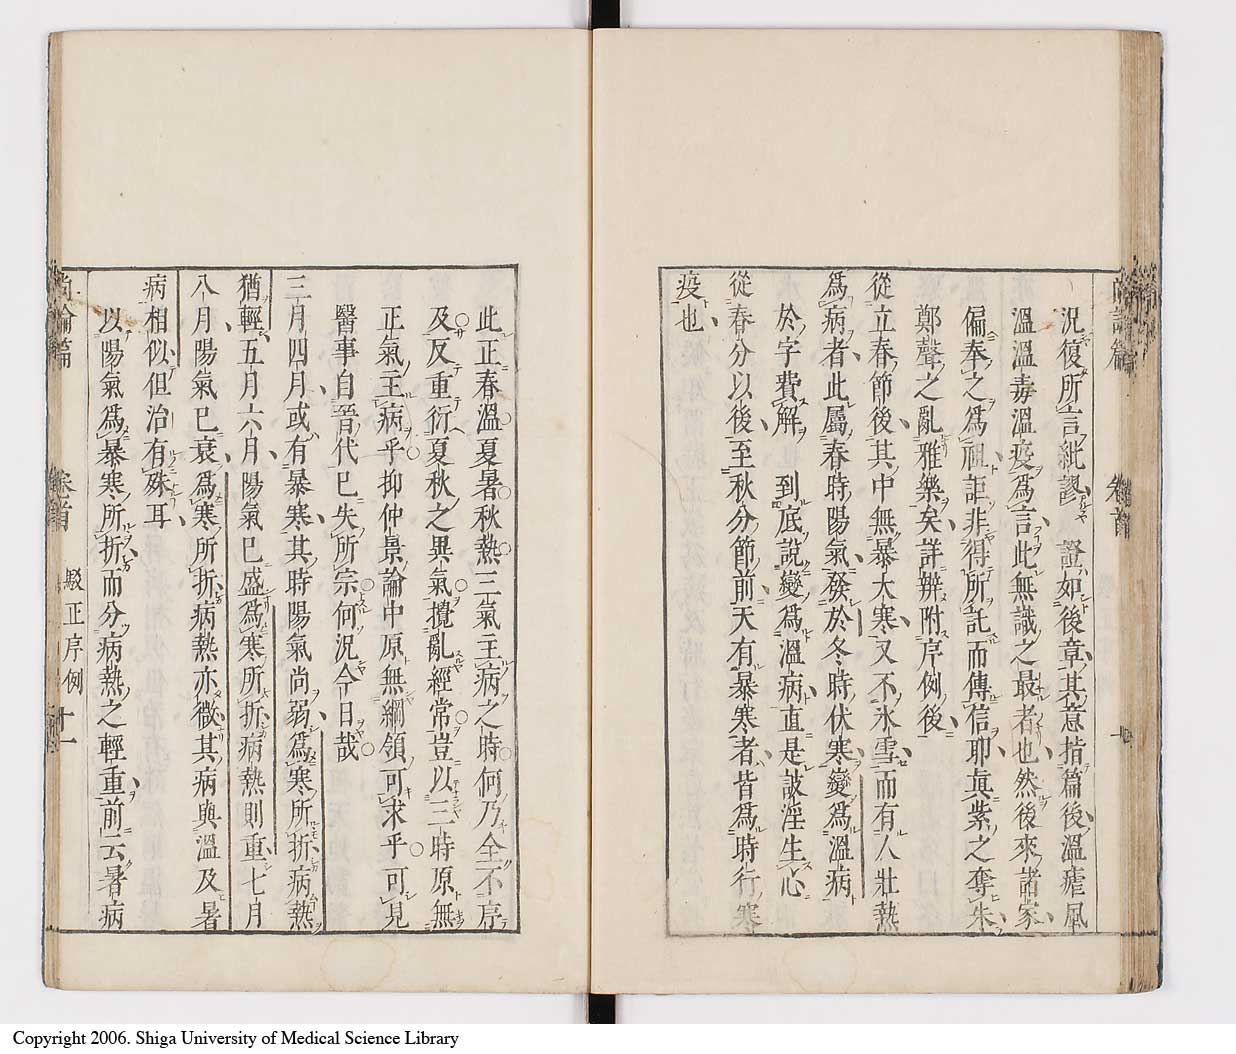 況復所言紕謬證如後章其意指篇後溫瘧風
溫溫毒溫疫爲言此無識之最者也然後來諸家
偏奉之爲祖詎非得所託而傳信耶眞紫之奪朱
鄭聲之亂雅樂矣詳辨附序例後
從立春節後其中無暴大寒又不氷雪而有人壯熱
爲病者此屬春時陽氣發於冬時伏寒變爲溫病
於字費解 到底說變爲溫病直是詖淫生心
從春分以後至秋分節前天有暴寒者皆爲時行寒
疫也
此正春溫夏暑秋熱三氣主病之時何乃全不序
及反重衍夏秋之異氣攪亂經常豈以三時原無
正氣主病乎抑仲景論中原無綱領可求乎可見
醫事自晉代已失所宗何況今日哉
三月四月或有暴寒其時陽氣尚弱爲寒所折病熱
猶輕五月六月陽氣已盛爲寒所折病熱則重七月
八月陽氣已衰爲寒所折病熱亦微其病與溫及暑
病相似但治有殊耳
以陽氣爲暴寒所折而分病熱之輕重前云暑病
尚論篇 卷首 駁正序例 十一
Copyright 2006. Shiga University of Medical Science Library